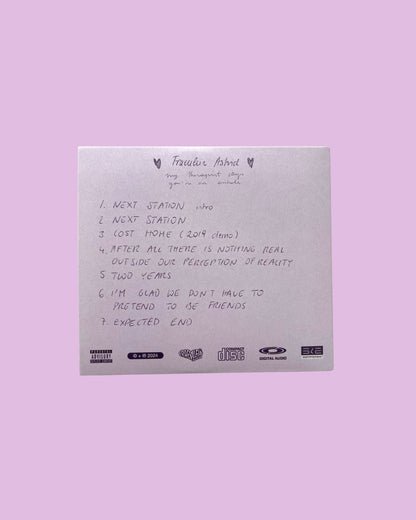 Fräulein Astrid
my therapist says
you're an asshole
1. NEXT STATION intro
2. NEXT STATION
3 LOST HOME (2019 demo)
4. AFTER ALL THERE IS NOTHING REAL
OUTSIDE OUR PERCEPTION OF REALITY
5 TWO YEARS
6. I'M GLAD WE DON'T HAVE TO
PRETEND TO BE FRIENDS
7. EXPECTED END
PARENTAL
ADVISORY
EXPLICIT CONTENT
© + ℗ 2024
COMPACT
disc
DIGITAL AUDIO